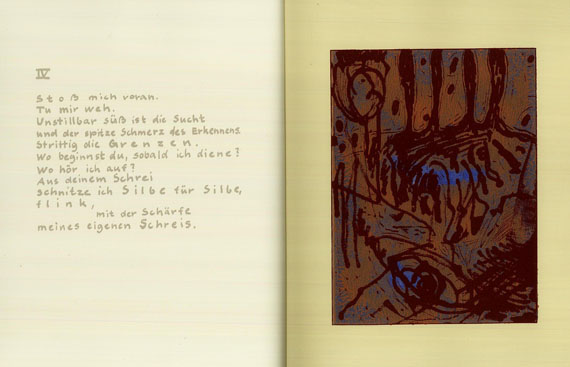 IV
Stoß mich voran.
Tu mir weh.
Unstillbar süß ist die Sucht
und der spitze Schmerz des Erkennens.
Strittig die Grenzen.
Wo beginnst du, sobald ich diene?
Wo hör ich auf?
Aus deinem Schrei
schnitze ich Silbe für Silbe,
flink,
mit der Schärfe
meines eigenen Schreis.